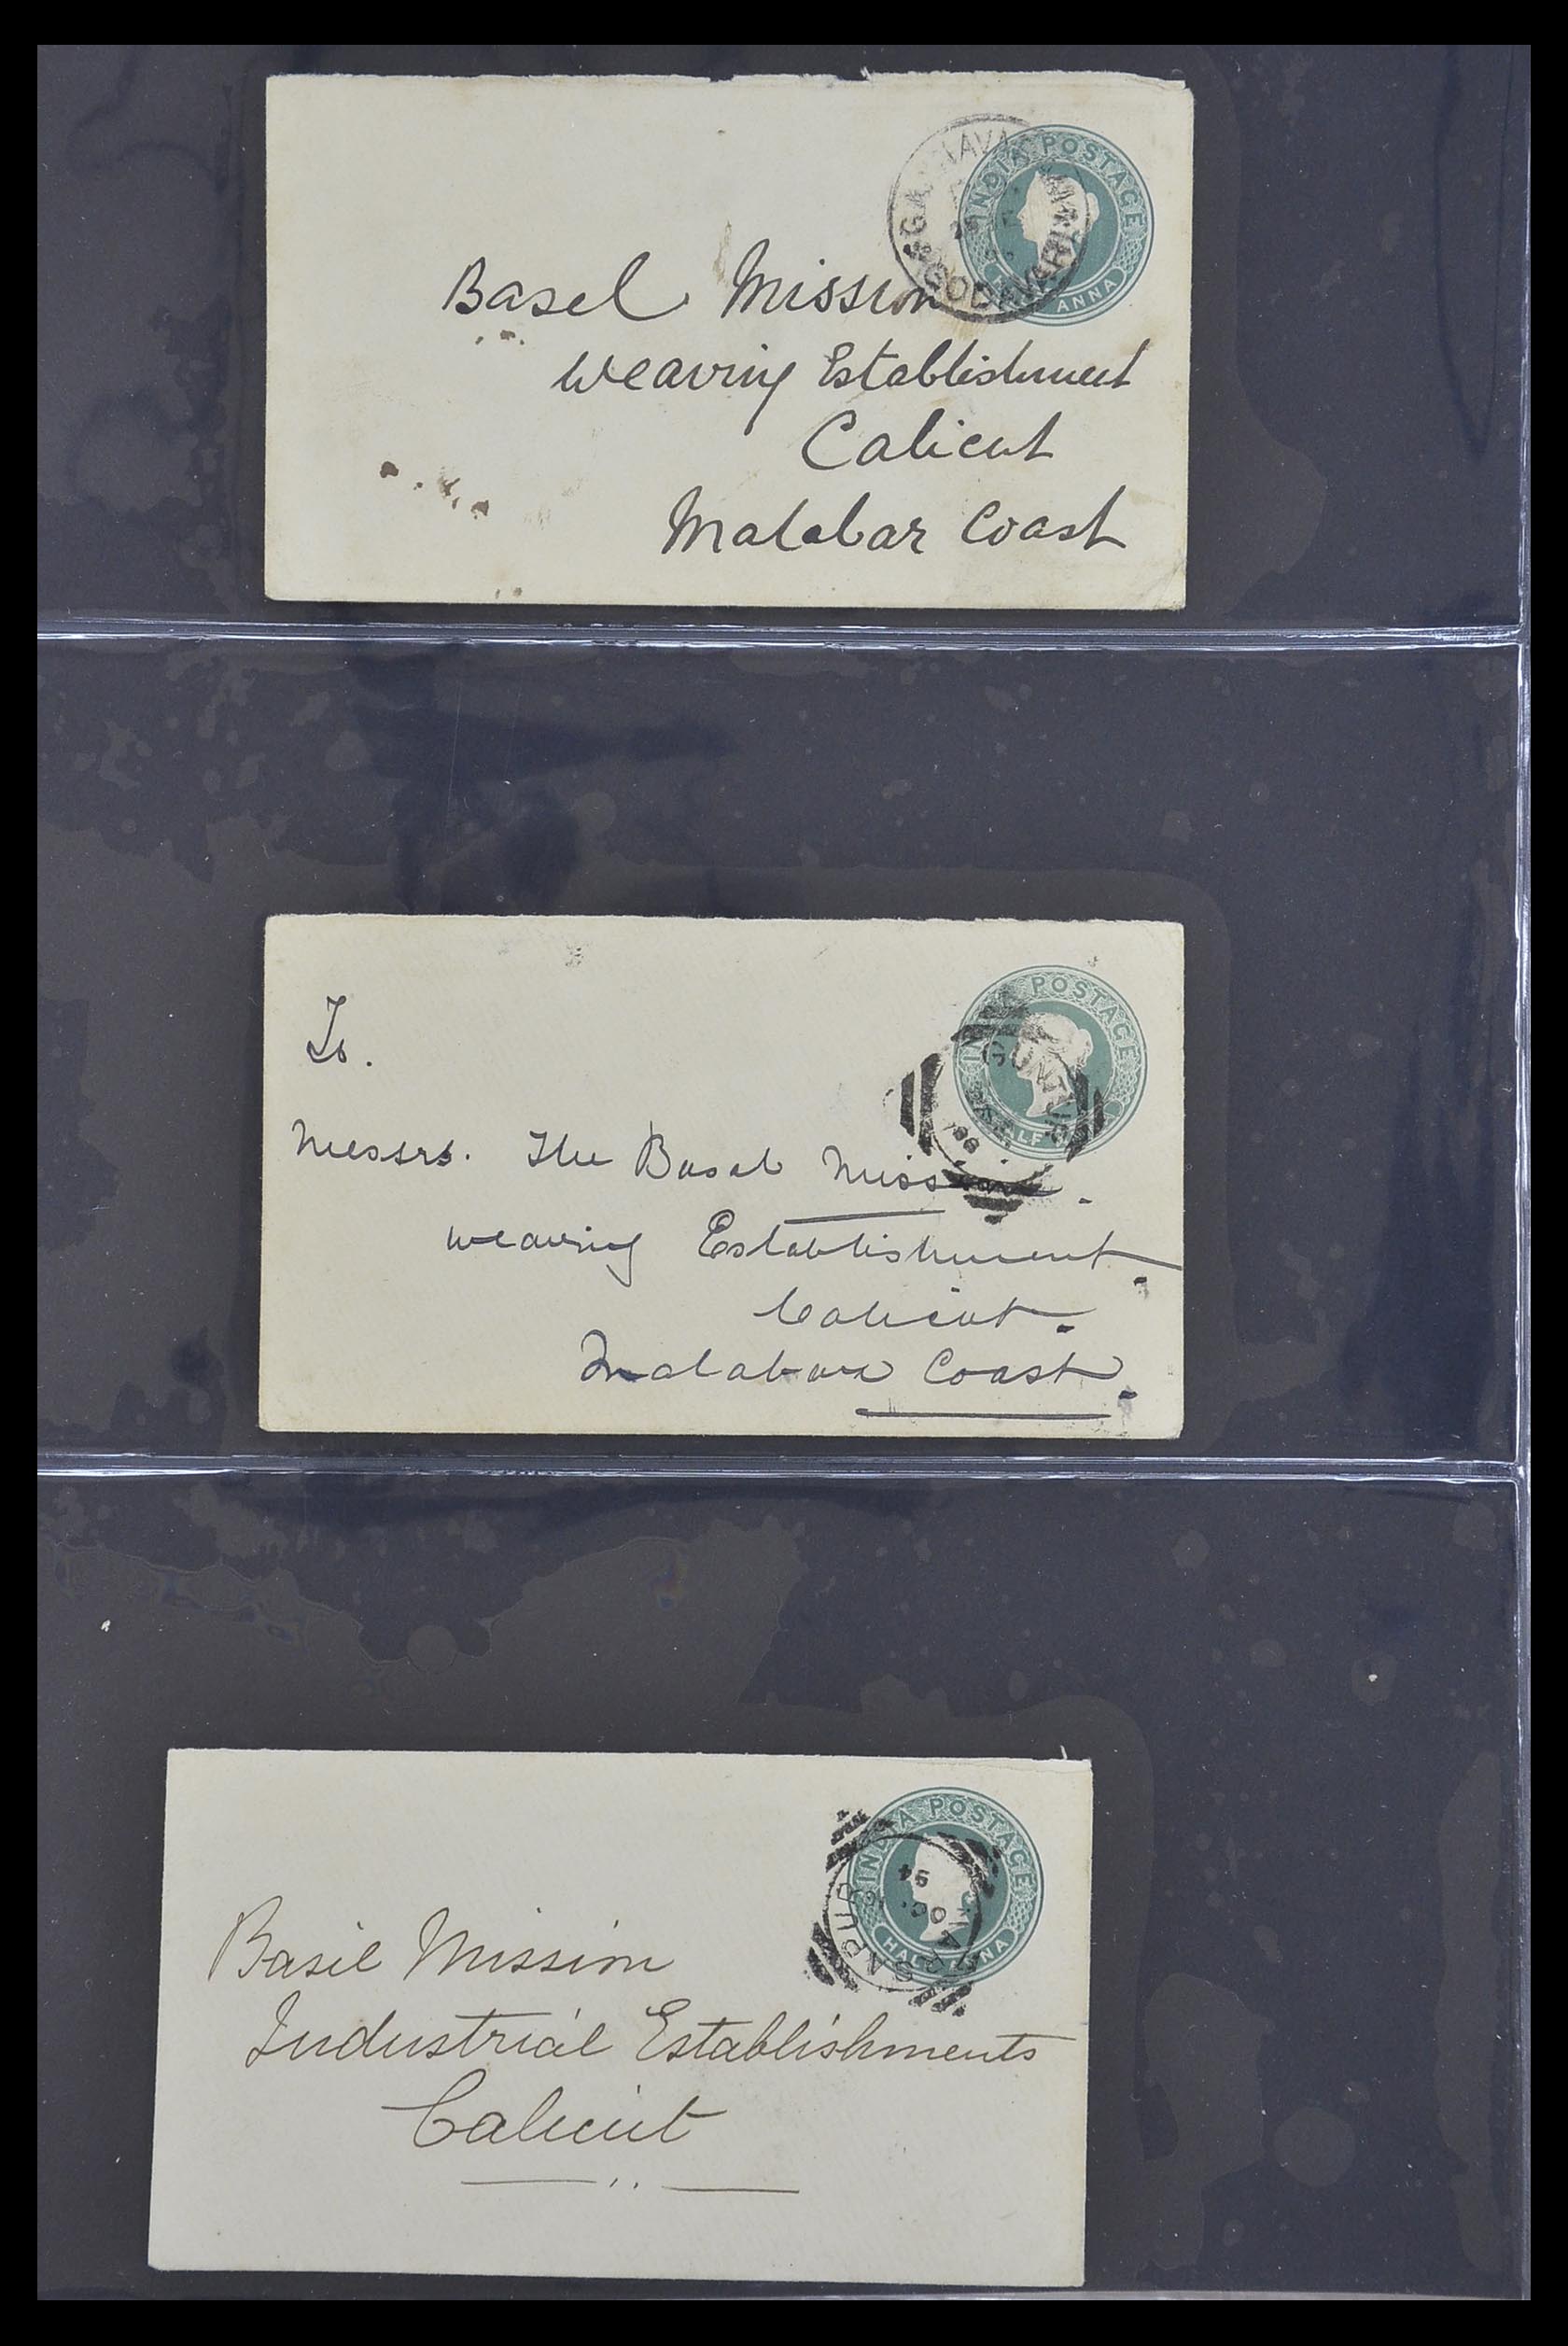 INDIA POSTAGE
ANNA
GODAVARI
Basel Mission
Weaving Establishment
Calicut
Malabar Coast
POSTAGE
To.
Messrs. The Basel Mission.
weaving Establishment.
Calicut.
Malabar Coast.
INDIA POSTAGE
HALF ANNA
94
OC
Basil Mission
Industrial Establishments
Calicut